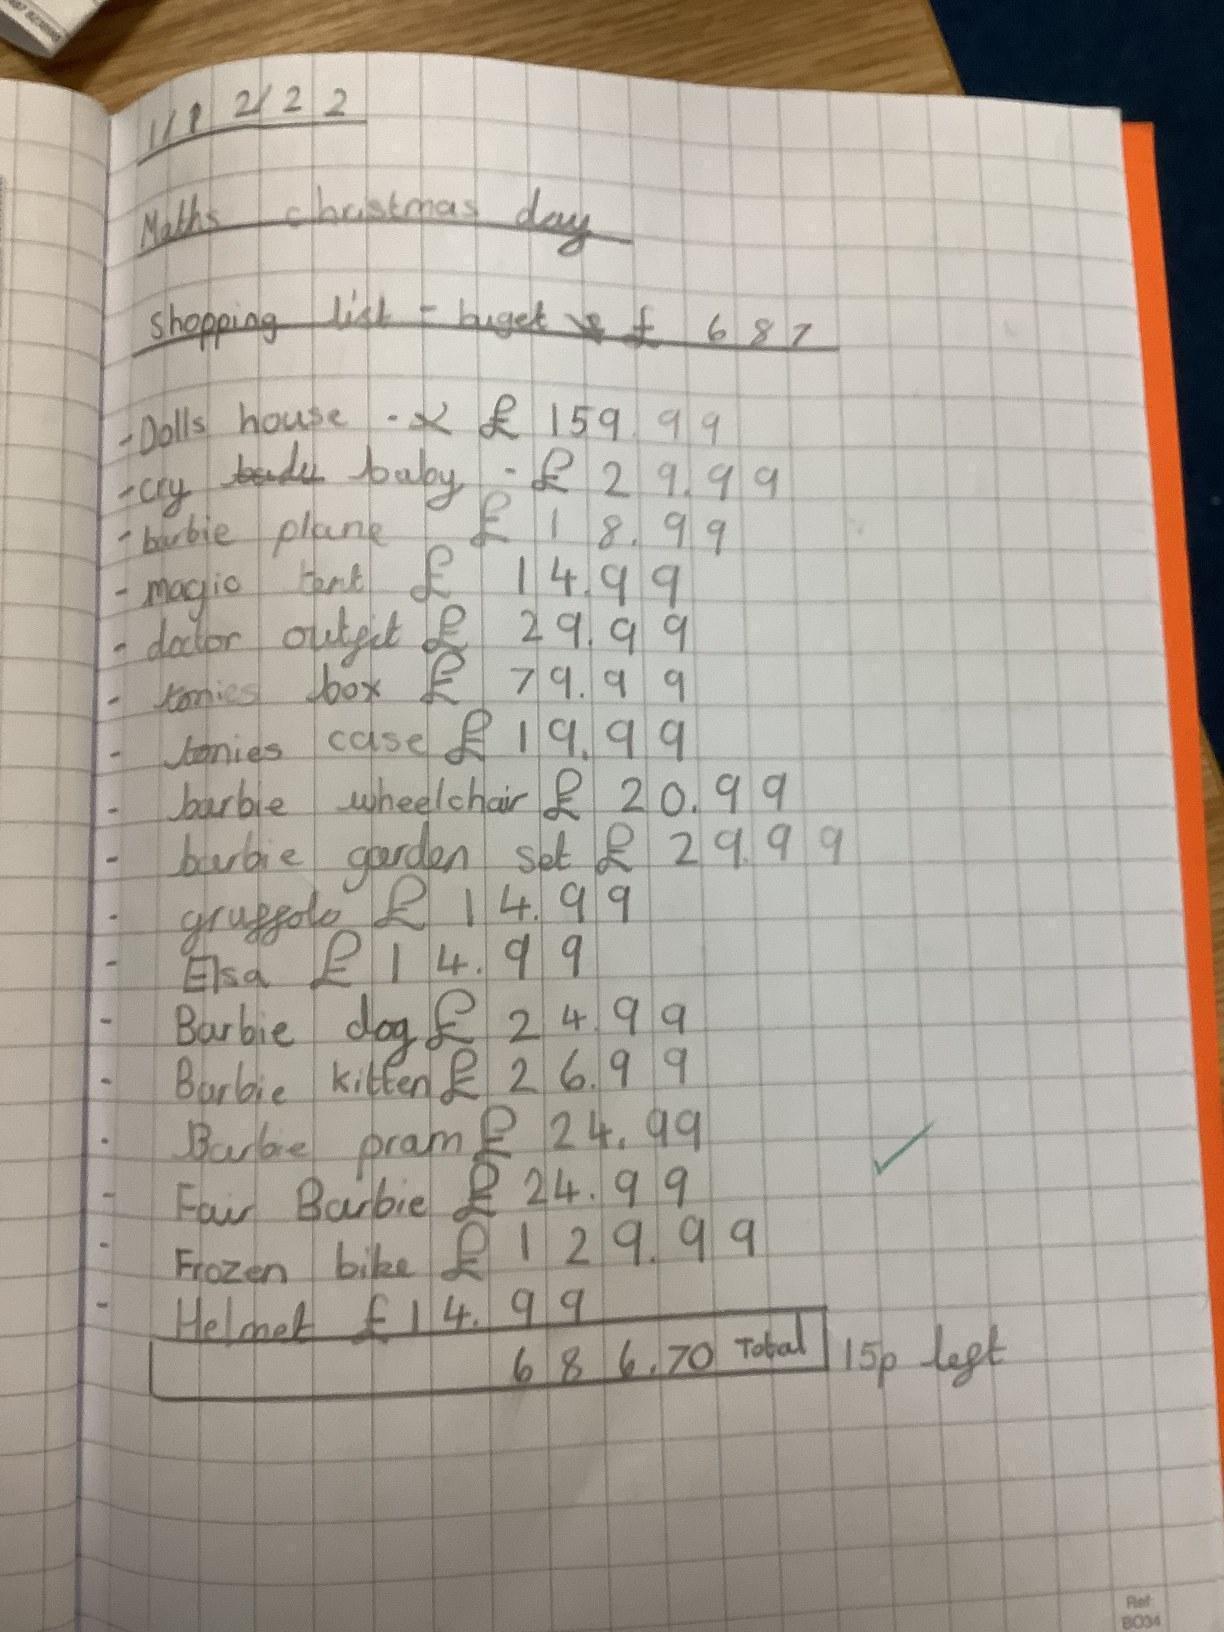 1/12/22
Maths christmas day
Shopping list - buget £ 687
- Dolls house - £ 159.99
- cry baby - £ 29.99
- barbie plane £ 18.99
- magic tent £ 14.99
- doctor outfit £ 29.99
- tonies box £ 79.99
- tonies case £ 19.99
- barbie wheelchair £ 20.99
- barbie garden set £ 29.99
- gruffolo £ 14.99
- Elsa £ 14.99
- Barbie dog £ 24.99
- Barbie kitten £ 26.99
- Barbie pram £ 24.99
- Fair Barbie £ 24.99
- Frozen bike £ 129.99
- Helmet £14.99
686.70 Total 15p left
Ref:
BO34